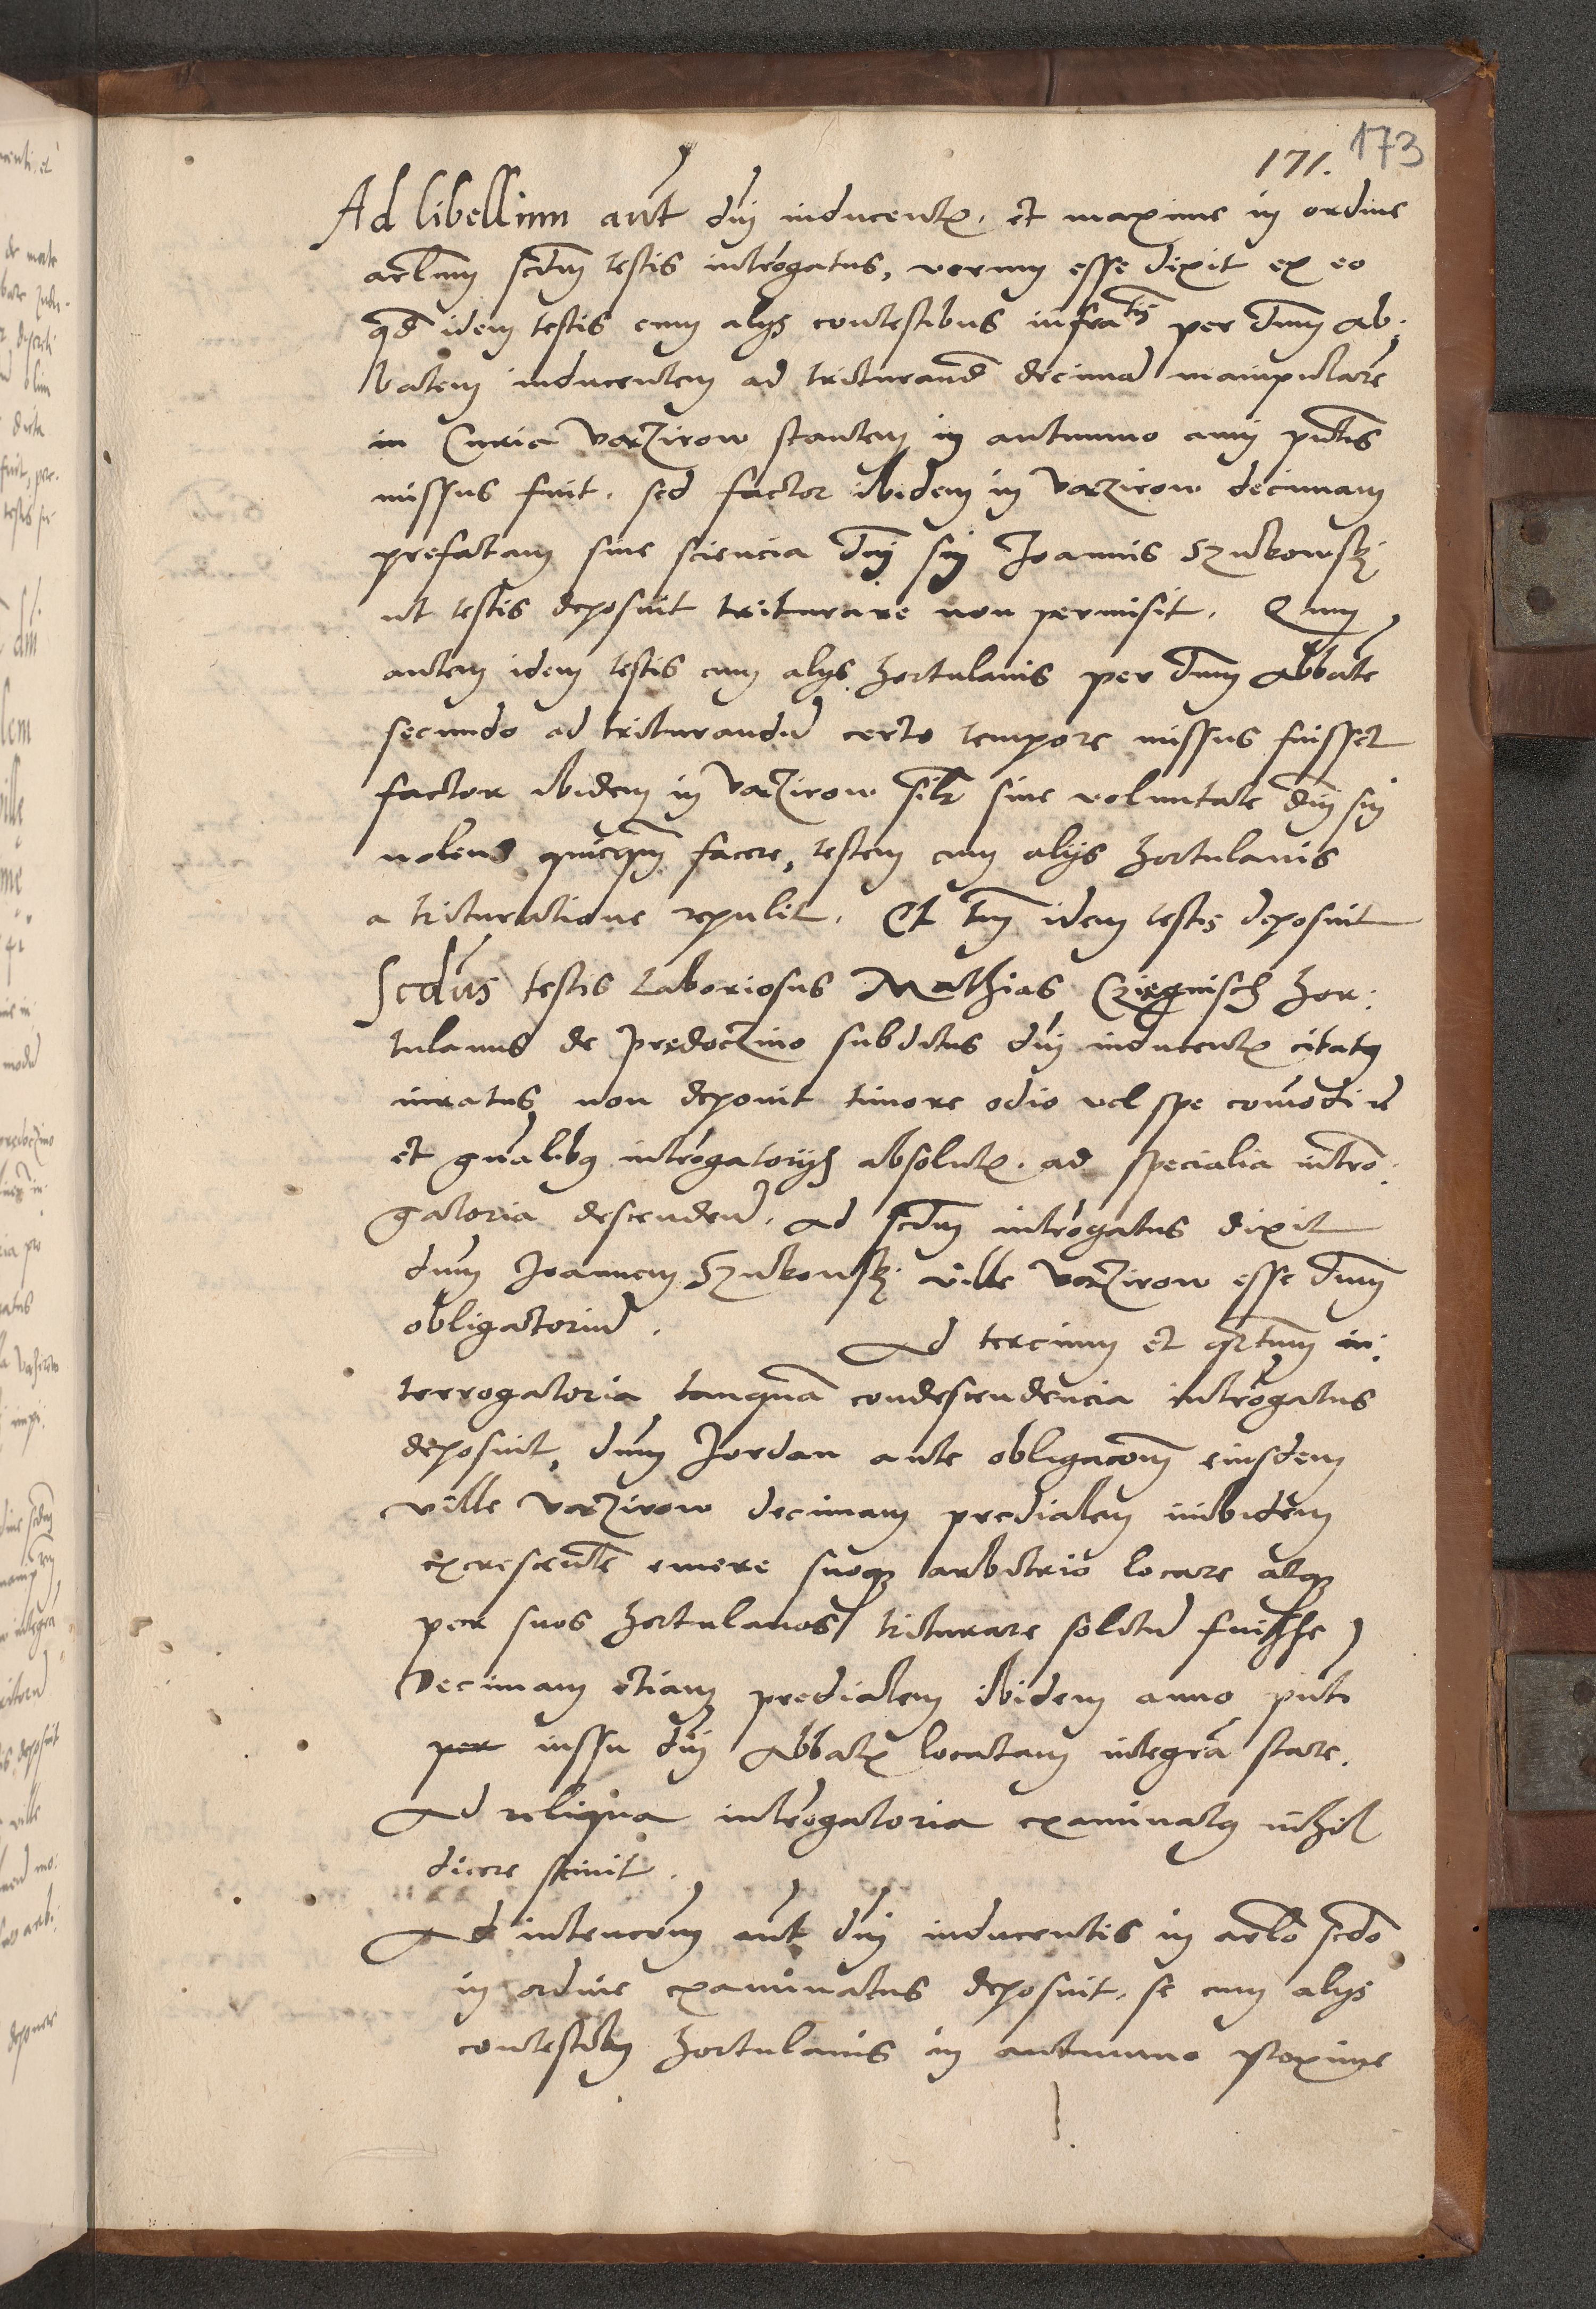 171. 173
Ad libellum aut dni inducent. et maxime in ordine
arlum scdm testis introgatus, verum esse dixit ex eo
qd idem testis cum alys contestibus infratis per dnm Ab:
batem inducentem ad triturand decima manipulare
in Curia Varzirow stantem in autumno anni pntis
missus fuit. sed factor ibidem in Varzirow decimam
prefatam sine sciencia dni sui Joannis Szulkowsky
ut testis deposuit triturare non permisit. Quum
autem idem testis cum alys hortulanis per dnm Abbate
secundo ad triturandu certo tempore missus fuisset
factor ibidem in Varzirow silr sine voluntate dni sui
nolens quicqm facere, testem cum alijs hortulanis
a trituratione repulit. Et tm idem testis deposuit
Scdus testis Laboriosus Mathias hor:
tulanus de Predoczino subditus dni inducent citatq
iuratus non deponit timore odio vel spe comodi re
et gnalibq introgatorijs absolut. ad specialia intro:
gatoria descenden. Ad scdm introgatus dixit
dnm Joannem Szulkowsky ville Varzirow esse dnm
obligatoriu. Ad tercium et qrtum in:
terrogatoria tanqua condescendencia introgatus
deposuit, dnm Jordan ante obligacom eiusdem
ville Varzirow decimam predialem inibidem
excrescente emere suoq arbitrio locare atq
per suos hortulanos triturare solitu fuisse
Decimam etiam predialem ibidem anno pnti
per iussu dni Abbat locatam integra stare.
Ad reliqua introgatoria examinatq nihil
dicere scivit.
Ad intencom aut dni inducentis in arlo scdo
in ordine examinatus deposuit. se cum alys
contestibq hortulanis in autumno proxime